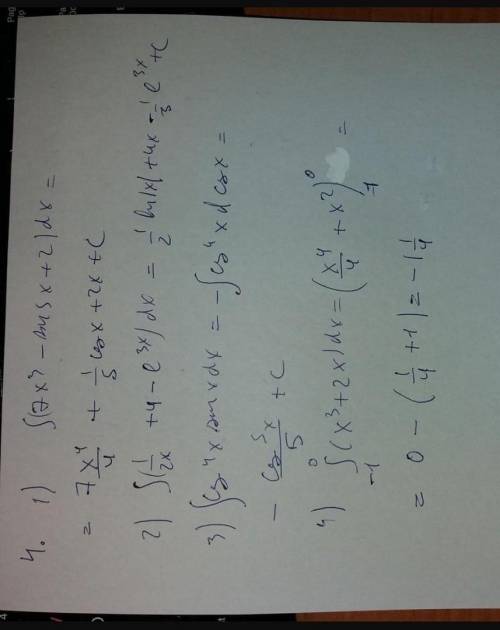 4. 1) ∫(7x³ - sin 5x + 2)dx =
= 7 x⁴/4 + 1/5 cos x + 2x + C
2) ∫(1/2x + 4 - e³ˣ)dx = 1/2 ln|x| + 4x - 1/3 e³ˣ + C
3) ∫cos⁴x sin x dx = - ∫cos⁴x d cos x =
- cos⁵x/5 + C
4) ∫₋₁⁰ (x³ + 2x)dx = (x⁴/4 + x²)|₋₁⁰ =
= 0 - (1/4 + 1) = - 1 1/4